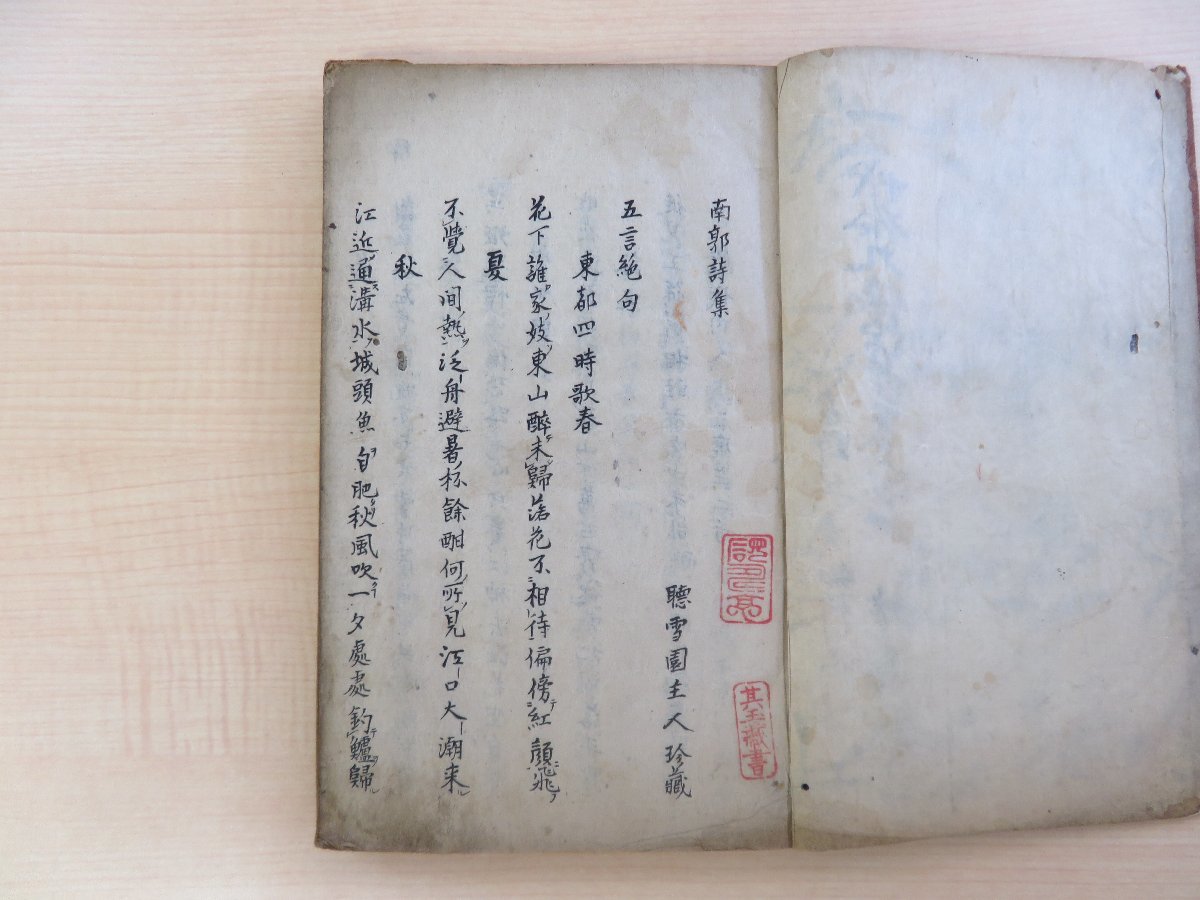 南郭詩集
聽雪園主人珍藏
五言絶句
東都四時歌春
花下誰家妓東山醉未歸落花不相待偏傍紅顔飛
夏
不覺人间熱泛舟避暑杯餘酣何所見江口大潮来
秋
江近通溝水城頭魚自肥秋風吹一夕處處釣鱸歸
其玉藏書